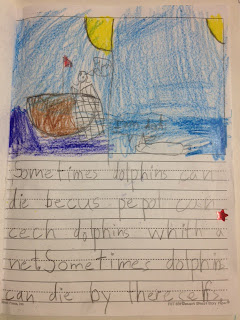 Sometimes dolphins can
die becus pepol can
cech dolphins whith a
net Sometimes dolphin
can die by there selfs.